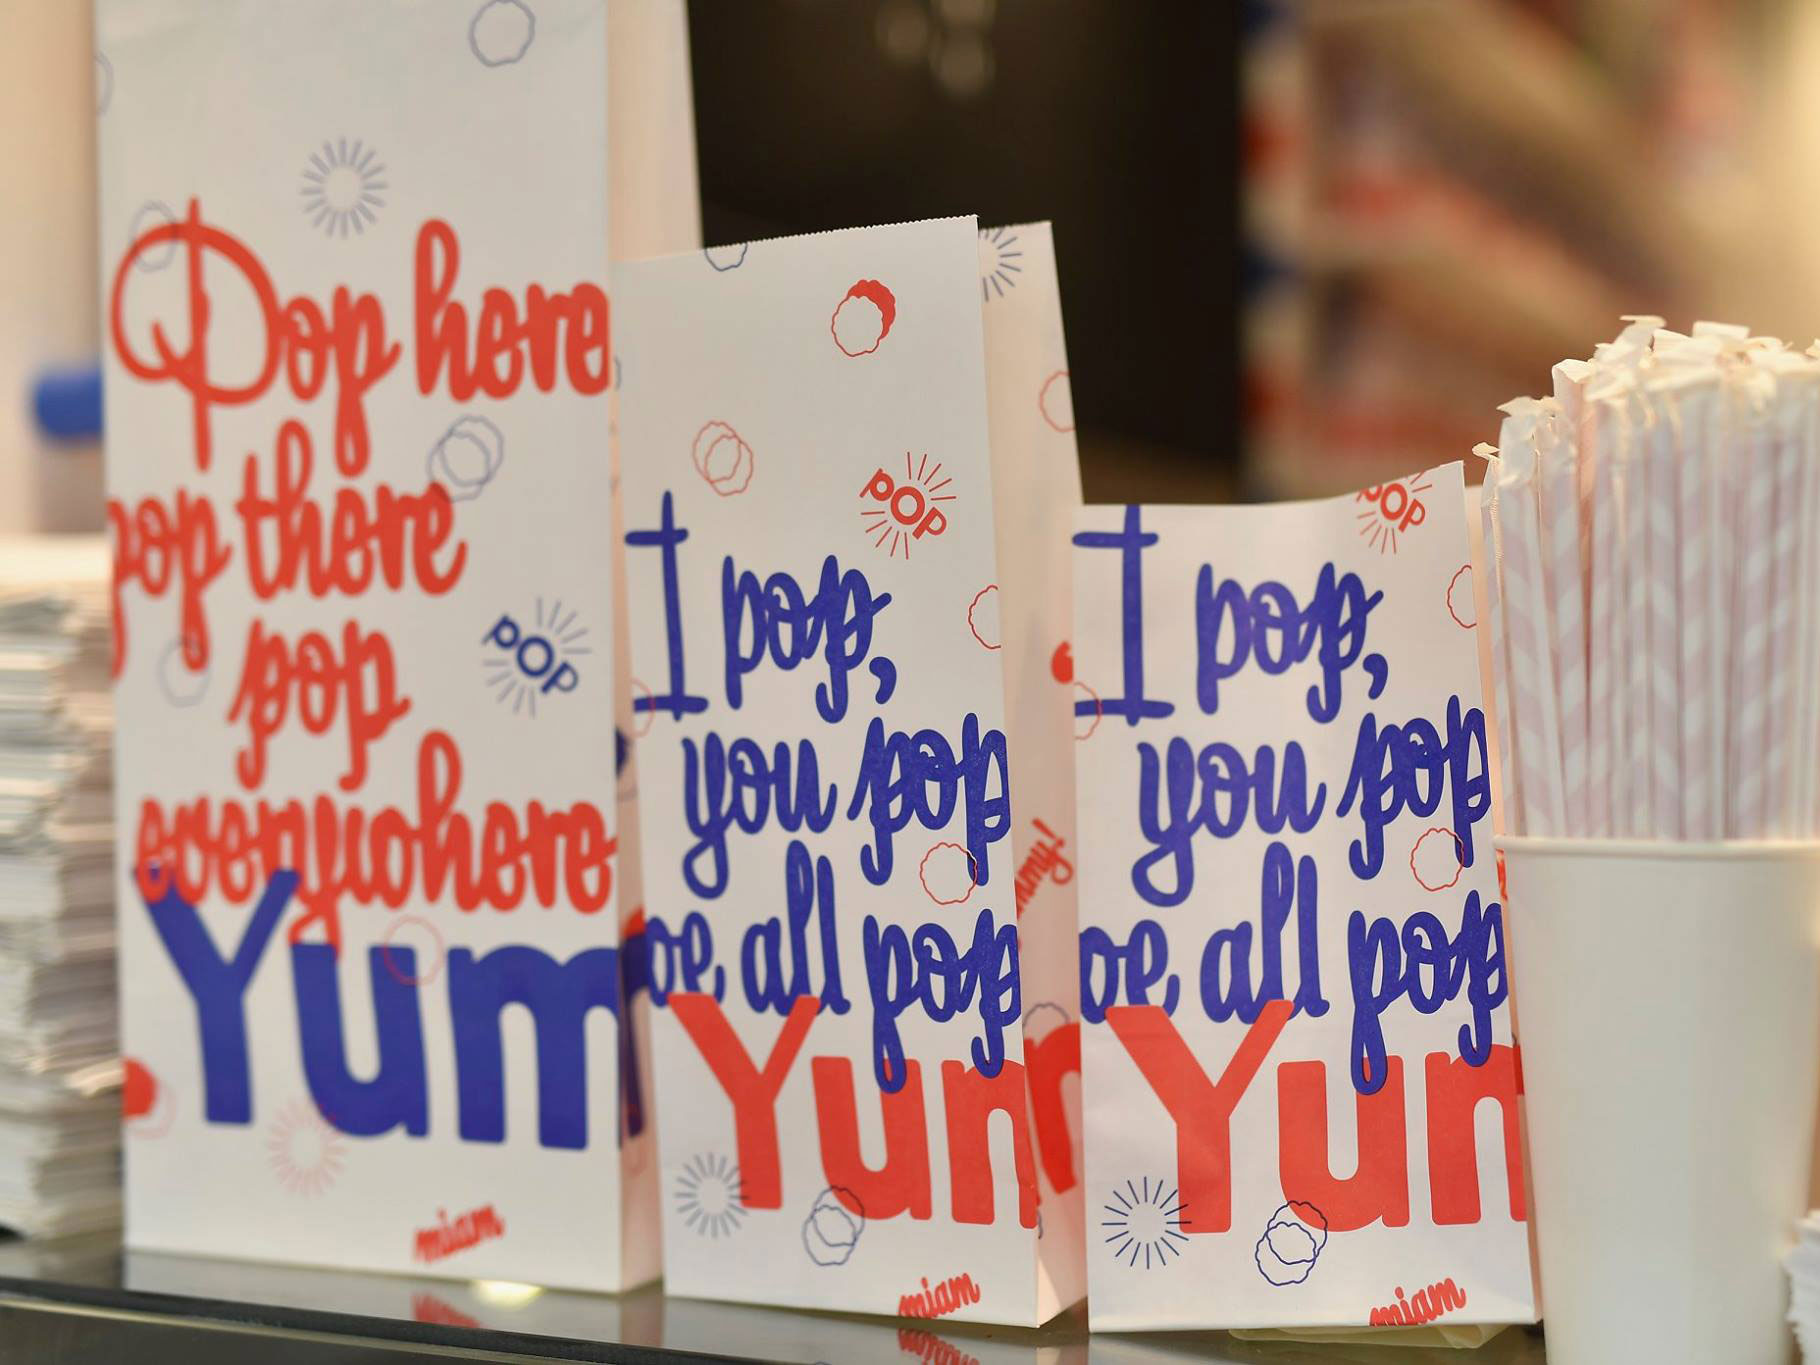 Pop here
pop there
pop
POP
everywhere
Yum
miam
POP
I pop,
you pop
we all pop
Yum
miam
POP
I pop,
you pop
we all pop
Yum
miam